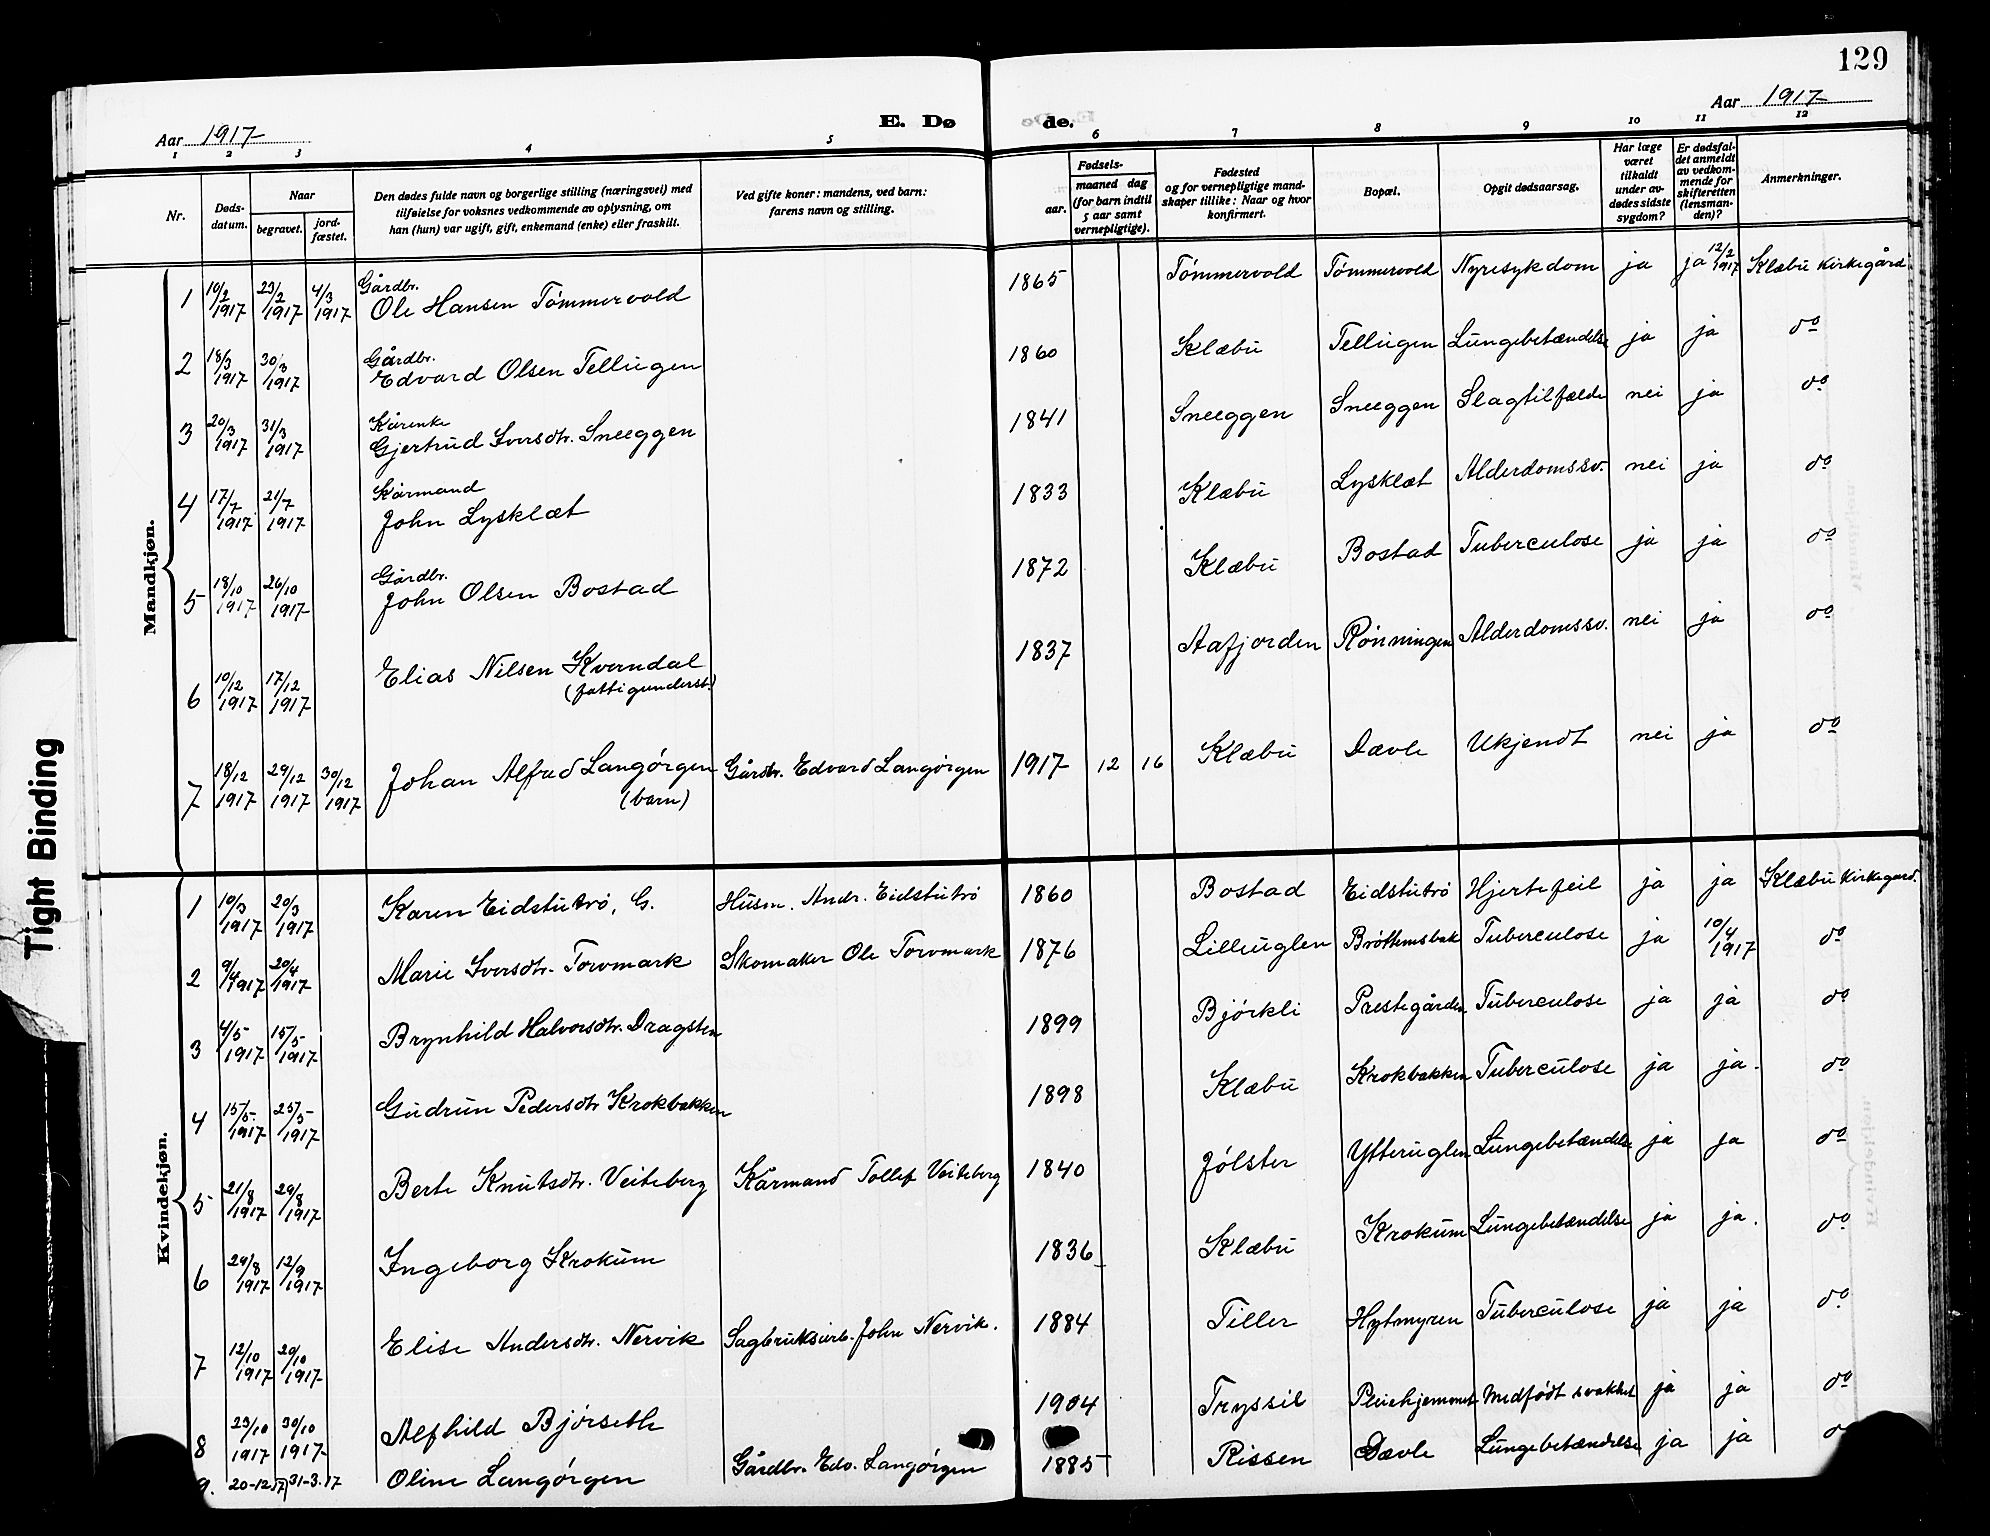 129
Aar 1917
E. Dø de.
Aar 1917
1 2 3 4 5 6 7 8 9 10 11 12
Nr.
Døds-
datum.
Naar
begravet.
jord-
fæstet.
Den dødes fulde navn og borgerlige stilling (næringsvei) med
tilføielse for voksnes vedkommende av oplysning, om
han (hun) var ugift, gift, enkemand (enke) eller fraskilt.
Ved gifte koner: mandens, ved barn:
farens navn og stilling.
Fødsels-
aar.
maaned dag
(for barn indtil
5 aar samt
vernepligtige).
Fødested
og for vernepligtige mand-
skaper tillike: Naar og hvor
konfirmert.
Bopæl.
Opgit dødsaarsag.
Har læge
været
tilkaldt
under av-
dødes sidste
sygdom?
Er dødsfal-
det anmeldt
av vedkom-
mende for
skifteretten
(lensman-
den)?
Anmerkninger.
Mandkjøn.
1 10/2 1917 23/2 1917 4/3 1917 Gårdbr. Ole Hansen Tømmervold 1865 Tømmervold Tømmervold Nyresykdom ja ja 12/2 1917 Klæbu Kirkegård
2 18/3 1917 30/3 1917 Gårdbr. Edvard Olsen Tellugen 1860 Klæbu Tellugen Lungebetændelse ja ja do
3 20/3 1917 31/3 1917 Kårenke Gjertrud Iversdtr. Sneeggen 1841 Sneeggen Sneeggen Slagtilfælde nei ja do
4 17/7 1917 21/7 1917 Kårmand John Lysklæt 1833 Klæbu Lysklæt Alderdomssv. nei ja do
5 18/10 1917 26/10 1917 Gårdbr. John Olsen Bostad 1872 Klæbu Bostad Tuberculose ja ja do
6 10/12 1917 17/12 1917 Elias Nilsen Kverndal (fattigunderst.) 1837 Aafjorden Rønningen Alderdomssv. nei ja do
7 18/12 1917 29/12 1917 30/12 1917 Johan Alfred Langørgen (barn) Gårdbr. Edvard Langørgen 1917 12 16 Klæbu Dævle Ukjendt nei ja do
Kvindekjøn.
1 10/3 1917 20/3 1917 Karen Eidstutrø, G. Husm. Andr. Eidstutrø 1860 Bostad Eidstutrø Hjertefeil ja ja Klæbu Kirkegard.
2 9/4 1917 20/4 1917 Marie Iversdtr. Torvmark Skomaker Ole Torvmark 1876 Lilleuglen Brøttemsbak Tuberculose ja 10/4 1917 do
3 4/5 1917 15/5 1917 Brynhild Halvorsdtr. Dragsten 1899 Bjørkli Prestegården Tuberculose ja ja do
4 15/5 1917 25/5 1917 Gudrun Pedersdtr Krokbakken 1898 Klæbu Krokbakken Tuberculose ja ja. do
5 21/8 1917 29/8 1917 Berte Knutsdtr. Veiteberg Kårmand Tollef Veiteberg 1840 Jølster Ytteruglen Lungebetændelse ja ja do
6 29/8 1917 12/9 1917 Ingeborg Krokum 1836 Klæbu Krokum Lungebetændelse ja ja. do
7 12/10 1917 20/10 1917 Elise Andersdtr. Nervik Sagbruksarb. John Nervik. 1884 Tiller Hytmyren Tuberculose ja ja do
8 23/10 1917 30/10 1917 Alfhild Bjørseth 1904 Tryssil Pleiehjemmet Medfødt svakhet ja ja do
9. 20-12 31-3.17 Oline Langørgen Gårdbr. Edv. Langørgen 1885 Rissen Dævle Lungebetændelse ja ja
Tight Binding